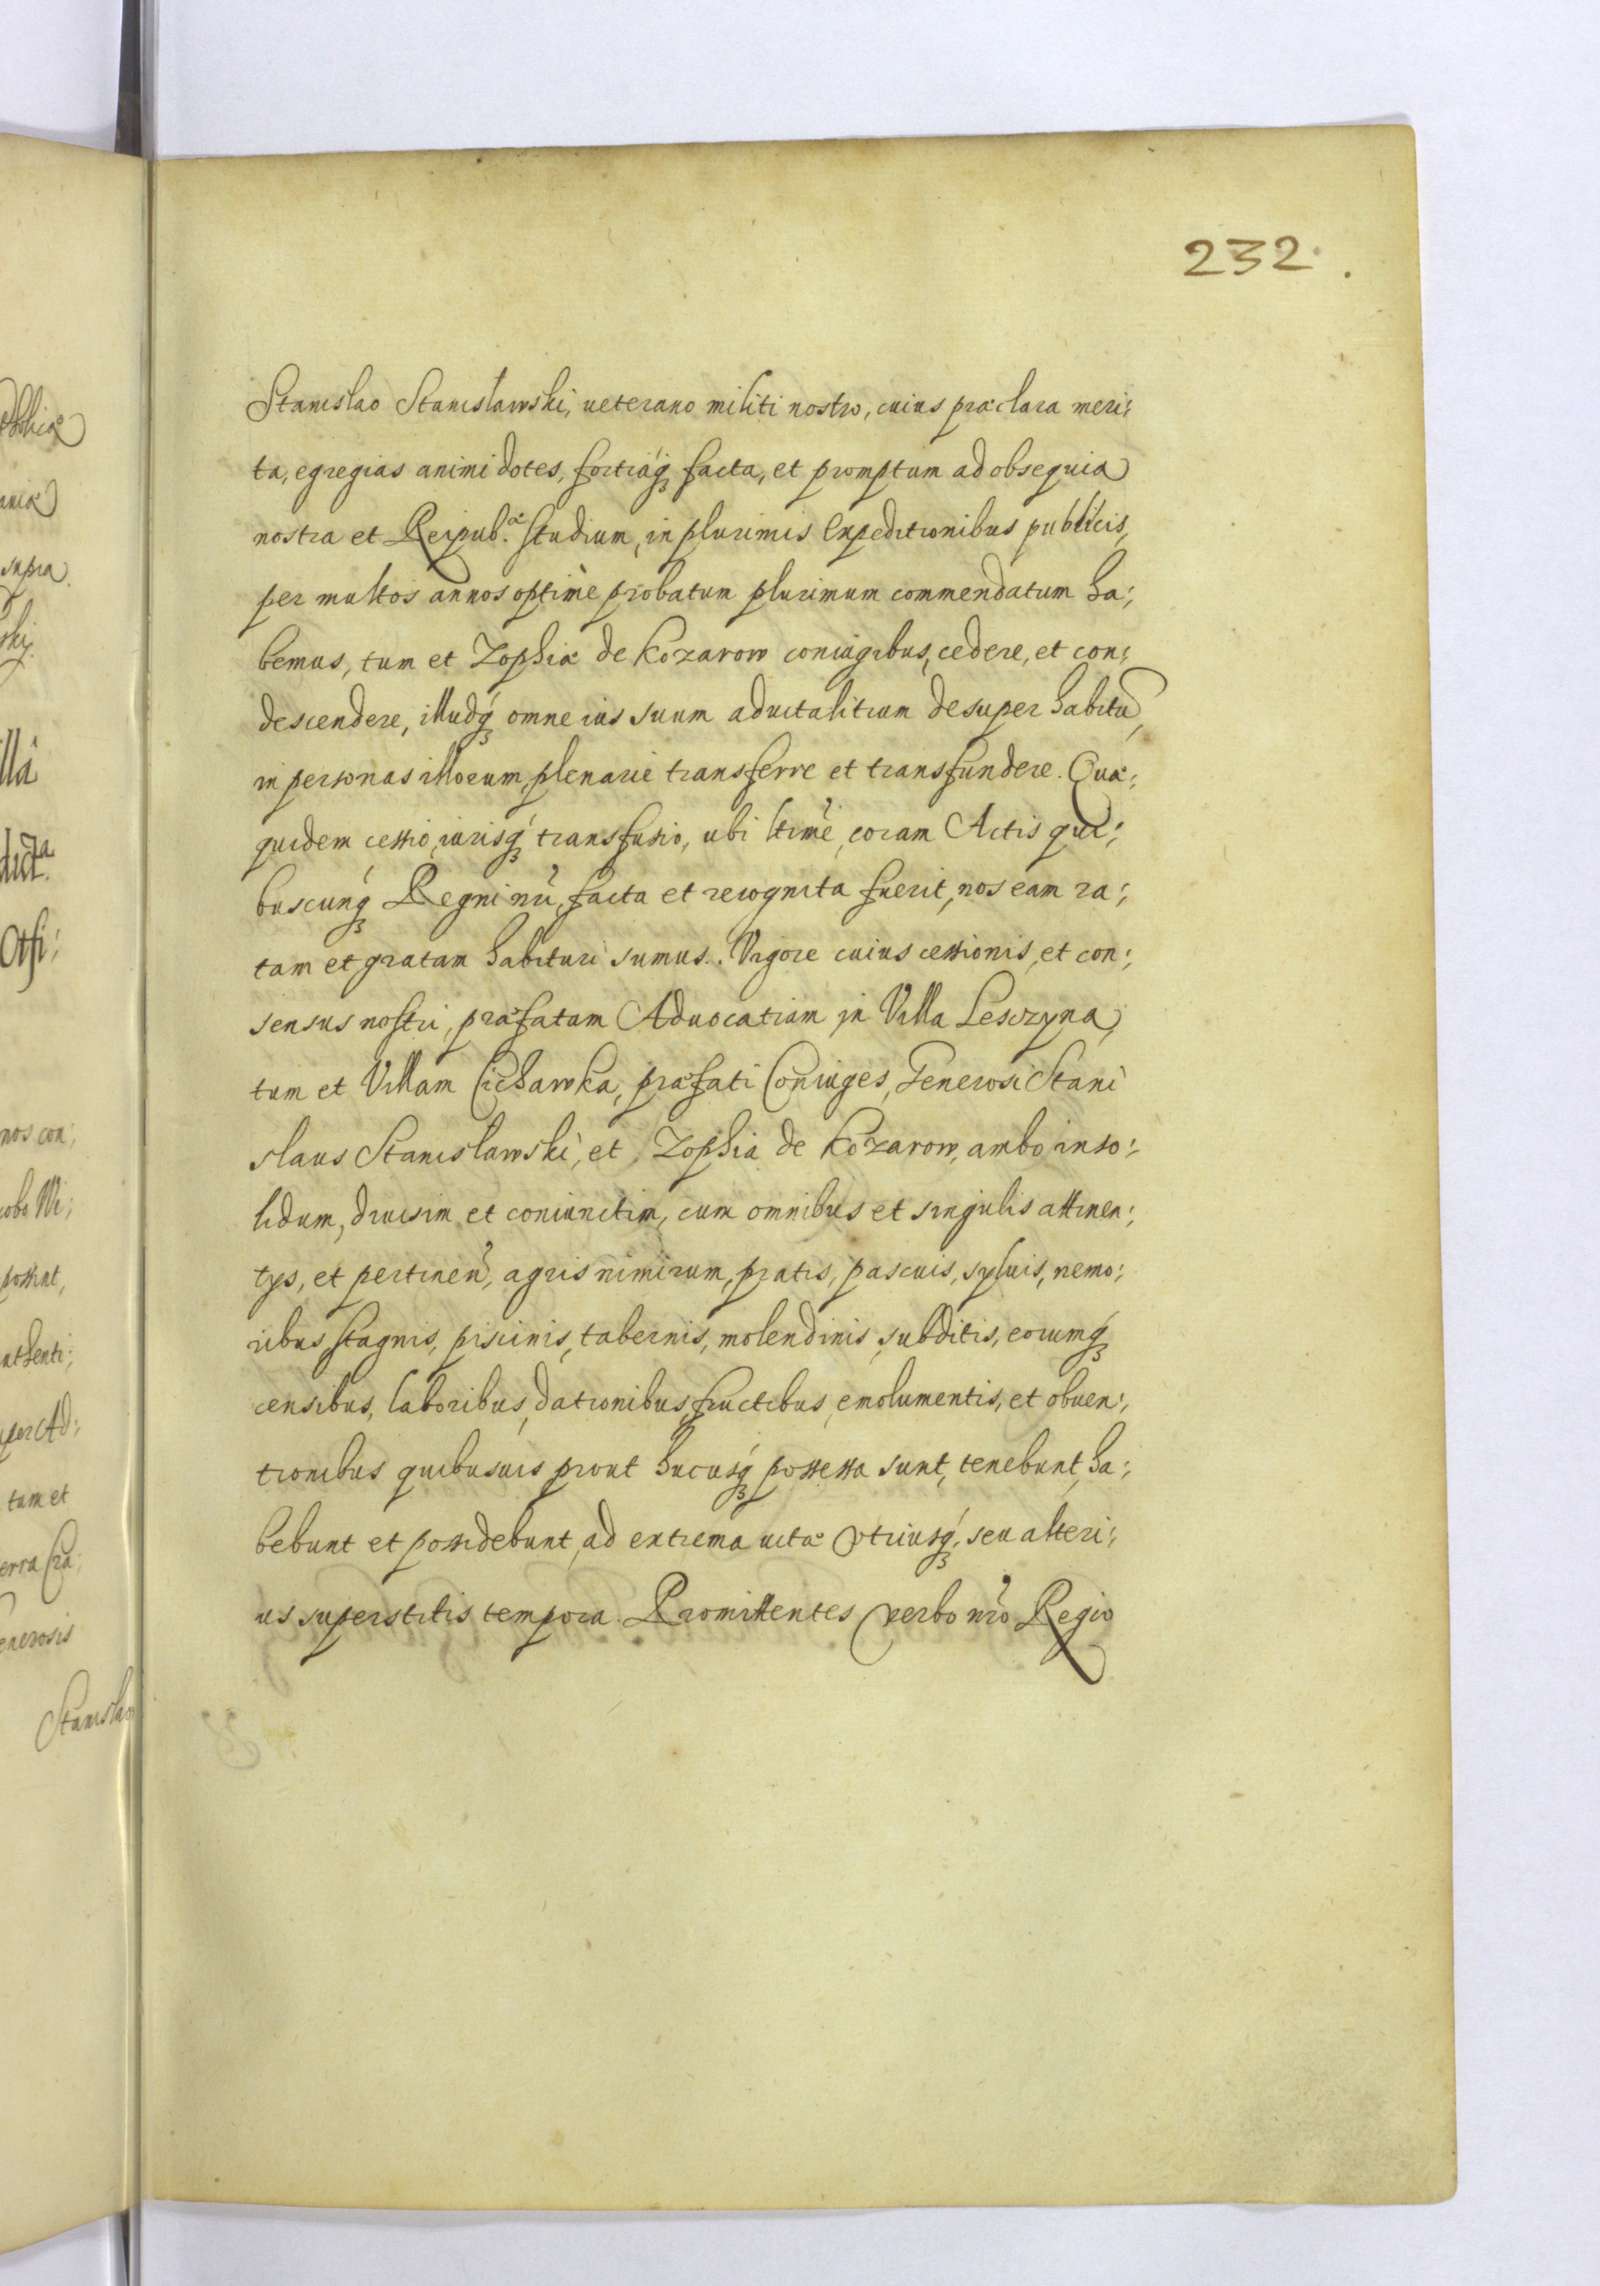 232.
Stanislao Stanisławski, ueterano militi nostro, cuius præclara meri:
ta, egregias animi dotes, fortiáq3 facta, et promptum ad obsequia
nostra et Reipub.æ studium, in plurimis Expeditionibus publicis,
per multos annos optimè probatum plurimum commendatum ha:
bemus, tum et Zophiæ de Kozarow coniugibus, cedere, et con:
descendere, illudq3 omne ius suum aduitalitium desuper habitũ,
in personas illorum, plenarie transferre et transfundere. Quæ:
quidem cessio, iurisq3 transfusio, ubi ltimè, coram Actis qui:
buscunq3 Regni nri, facta et recognita fuerit, nos eam ra:
tam et gratam habituri sumus. Vigore cuius cessionis, et con:
sensus nostri, præfatam Aduocatiam in Villa Lesczyna,
tum et Villam Cichawka, præfati Coniuges, Generosi Stani
slaus Stanisławski, et Zophia de Kozarow, ambo inso:
lidum, diuisim et coniunctim, cum omnibus et singulis attinen:
tys, et pertinen, agris nimirum, pratis, pascuis, syluis, nemo:
ribus, stagnis, piscinis, tabernis, molendinis, subditis, eorumq3
censibus, laboribus, dationibus, fructibus, emolumentis, et obuen:
tionibus quibusuis prout hucusq3 possessa sunt, tenebunt, ha:
bebunt et possidebunt, ad extrema uitæ vtriusq3, seu alteri:
us superstitis tempora. Promittentes verbo nro Regio
Stanislao